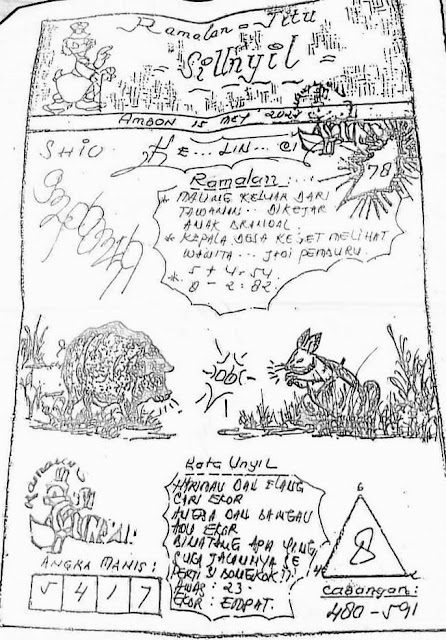 Ramalan - Jitu
Si Unyil
AMBON 15 MEY
SHIO
HE... LIN... 
78
Ramalan:
* MAUNG KELUAR DARI
TAWANAN... DIKEJAR
ANAK BRANDAL.
* KEPALA DESA KEGET MELIHAT
WANITA... JADI PEMBURU.
* 5 + 4 = 54
8 - 2 : 82
06
Kata Unyil
HARIMAU DAN ELANG
CARI EKOR
ANGSA DAN BANGAU
ADU EKOR
BINATANG APA YANG
SUKA JALANNYA SE
PERTI SI BONGKOK !?
AWAS : 23
EKOR : EMPAT.
ANGKA MANIS :
5 4 1 7
6
8
Cabangan :
480 - 591